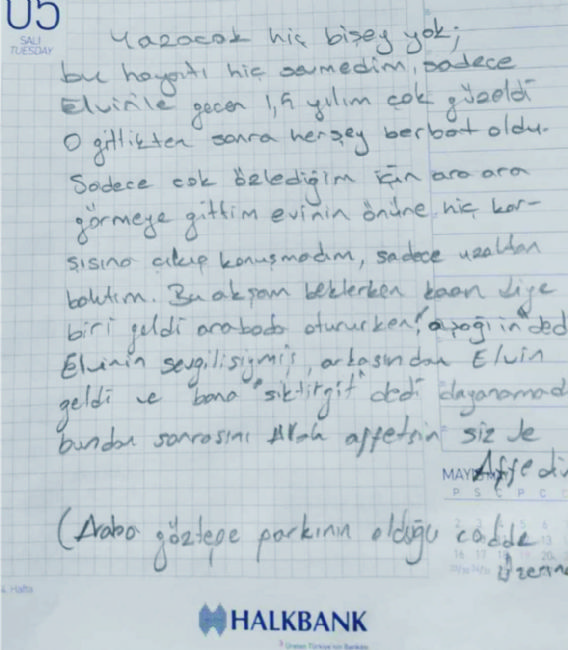 05
SALI
TUESDAY
Yazacak hiç bişey yok;
bu hayatı hiç sevmedim, sadece
Elvinle geçen 1,5 yılım çok güzeldi
O gittikten sonra herşey berbat oldu.
Sadece çok özlediğim için ara ara
görmeye gittim evinin önüne, hiç kar-
şısına çıkıp konuşmadım, sadece uzaktan
baktım. Bu akşam beklerken kaan diye
biri geldi arabada otururken, "aşağı in" ded
Elvinin sevgilisiymiş, arkasından Elvin
geldi ve bana "siktirgit" dedi dayanamad
bundan sonrasını Allah affetsin siz de
Affedi
MAYIS
P S Ç P C C
(Araba göztepe parkının olduğu cadde
üzerine
Hafta
HALKBANK